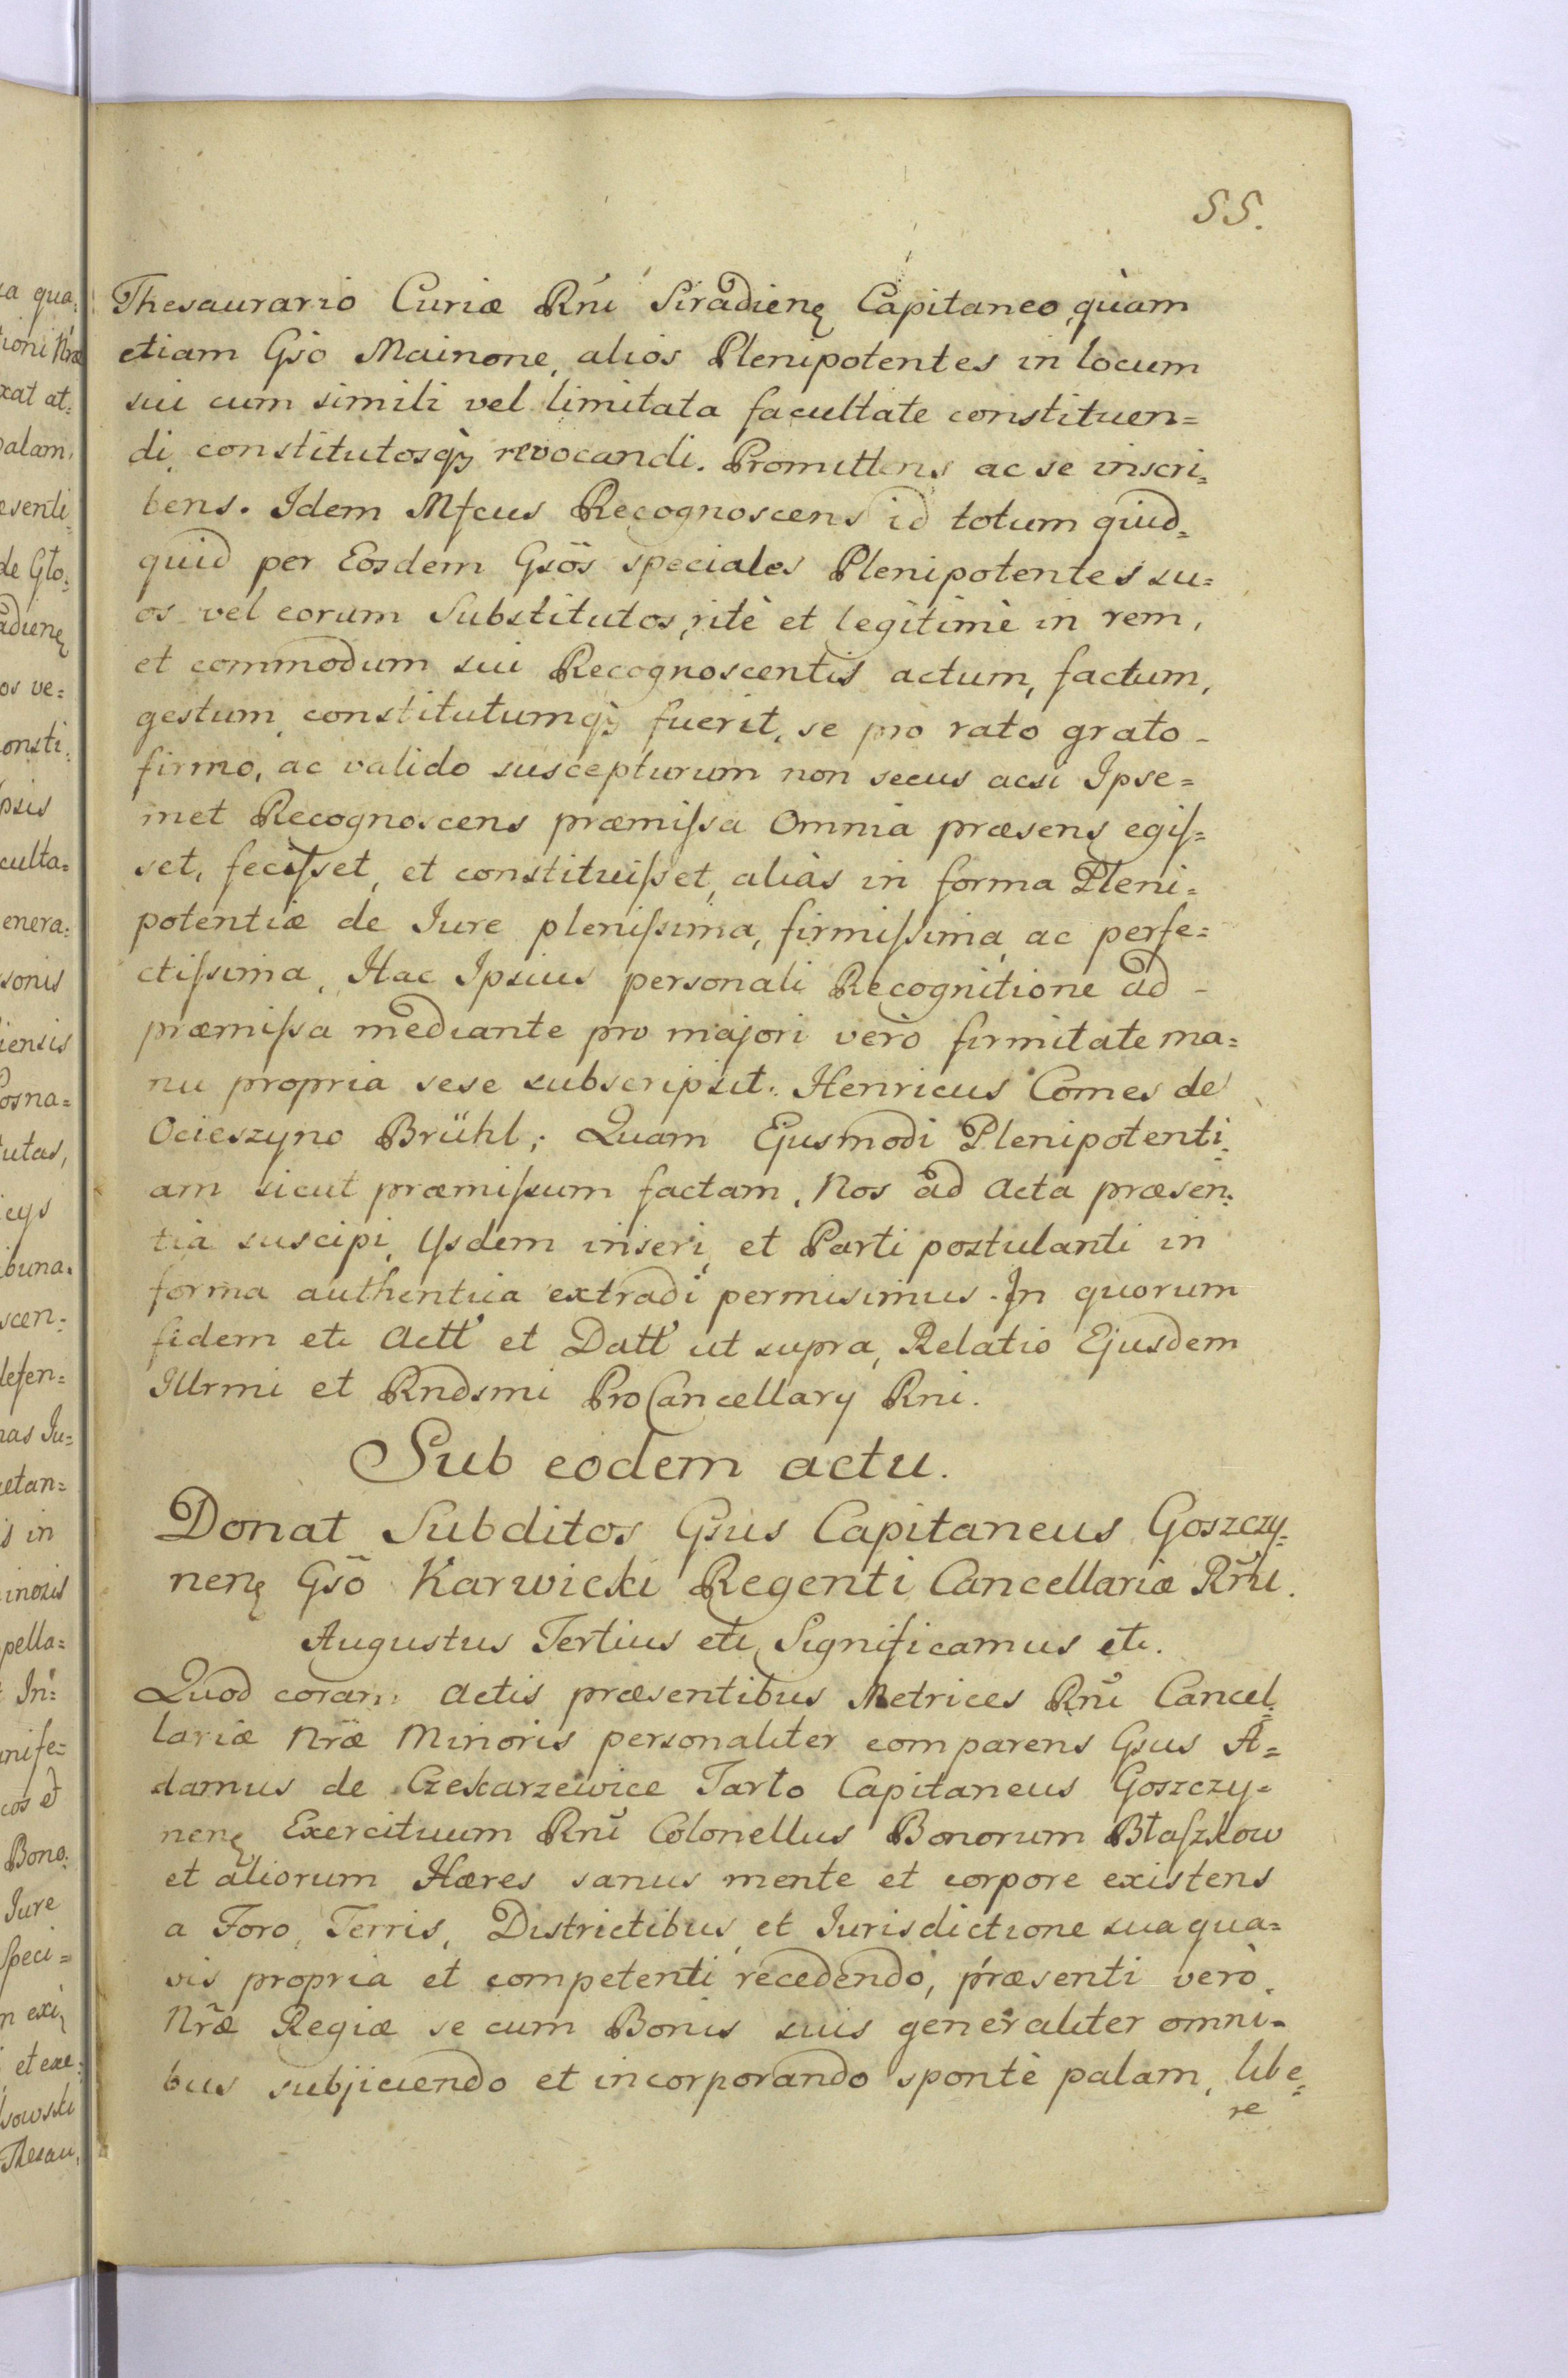 55.
Thesaurario Curiæ Rńi Siradienę Capitaneo, quàm
etiam Gsö Mainone, alios Plenipotentes in locum
sui cum simili vel limitata facultate constituen=
di, constitutosqȝ revocandi. Promittens ac se inscri=
bens. Idem Mfcus Recognoscens id totum quid=
quid per Eosdem Gsös speciales Plenipotentes su=
os vel eorum Substitutos, ritè et legitimè in rem,
et commodum sui Recognoscentis actum, factum,
gestum, constitutumqȝ fuerit, se pro rato grato
firmo, ac valido suscepturum non secus acsi Ipse=
met Recognoscens præmiſsa Omnia præsenę egiſ=
set, feciſset, et constituiſset, aliàs in forma Pleni=
potentiæ de Iure pleniſsima, firmiſsima, ac perfe=
ctiſsima, Hac Ipsius personali Recognitione ad
præmiſsa mediante pro majori verò firmitate ma=
nu propria sese subscripsit. Henricus Comes de
Ocieszyno Brühl; Quam Ejusmodi Plenipotenti=
am sicut præmiſsum factam, Nos ad Acta præsen=
tia suscipi, Ysdem inseri, et Parti postulanti in
forma authentica extradi permisimus. In quorum
fidem etc Actt et Datt ut supra, Relatio Ejusdem
Illrmi et Rndsmi ProCancellary Rni.
Sub eodem actu.
Donat Subditos Gsus Capitaneus Goszczy=
nenę Gsõ Karwicki Regenti Cancellariæ Rñi.
Augustus Tertius etc Significamus etc.
Quod coram Actis præsentibus Metrices Rni Cancel=
lariæ Nræ Minoris personaliter comparens Gsus A=
damus de Czekarzewice Tarło Capitaneus Goszczy=
nenę Exercituum Rni Colonellus Bonorum Błaſzkow
et aliorum Hæres sanus mente et corpore existens
a Foro, Terris, Districtibus, et Iurisdictione sua qua=
vis propria et competenti recedendo, præsenti verò
Nræ Regiæ se cum Bonis suis generaliter omni=
bus subjiciendo et incorporando spontè palam, libe=
re